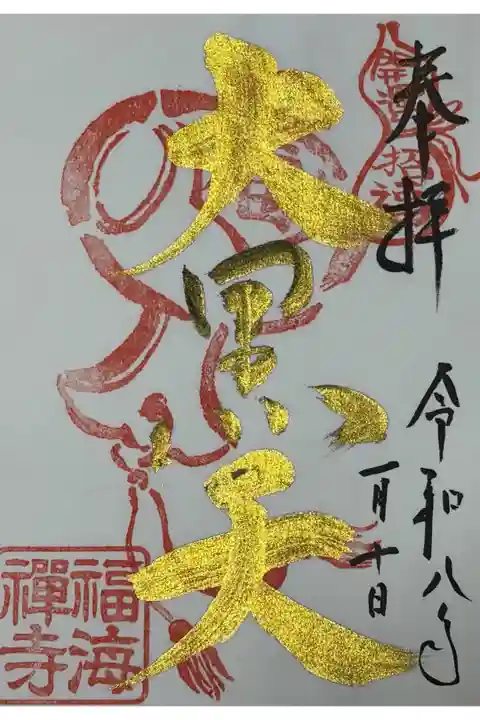 奉拝
開運招福
大黒天
令和八年
一月十日
福海
禅寺